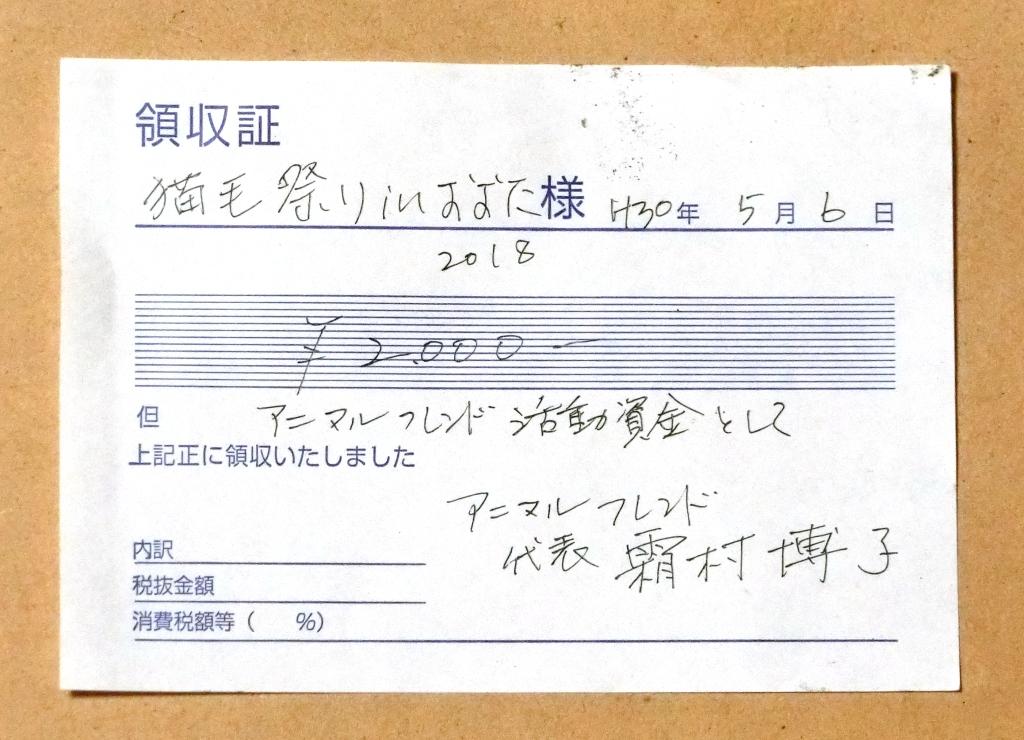 領収証
猫毛祭りinおおた様 H30年 5月 6日
2018
¥2,000－
但 アニマルフレンド活動資金として
上記正に領収いたしました
アニマルフレンド
代表 霜村博子
内訳
税抜金額
消費税額等( %)